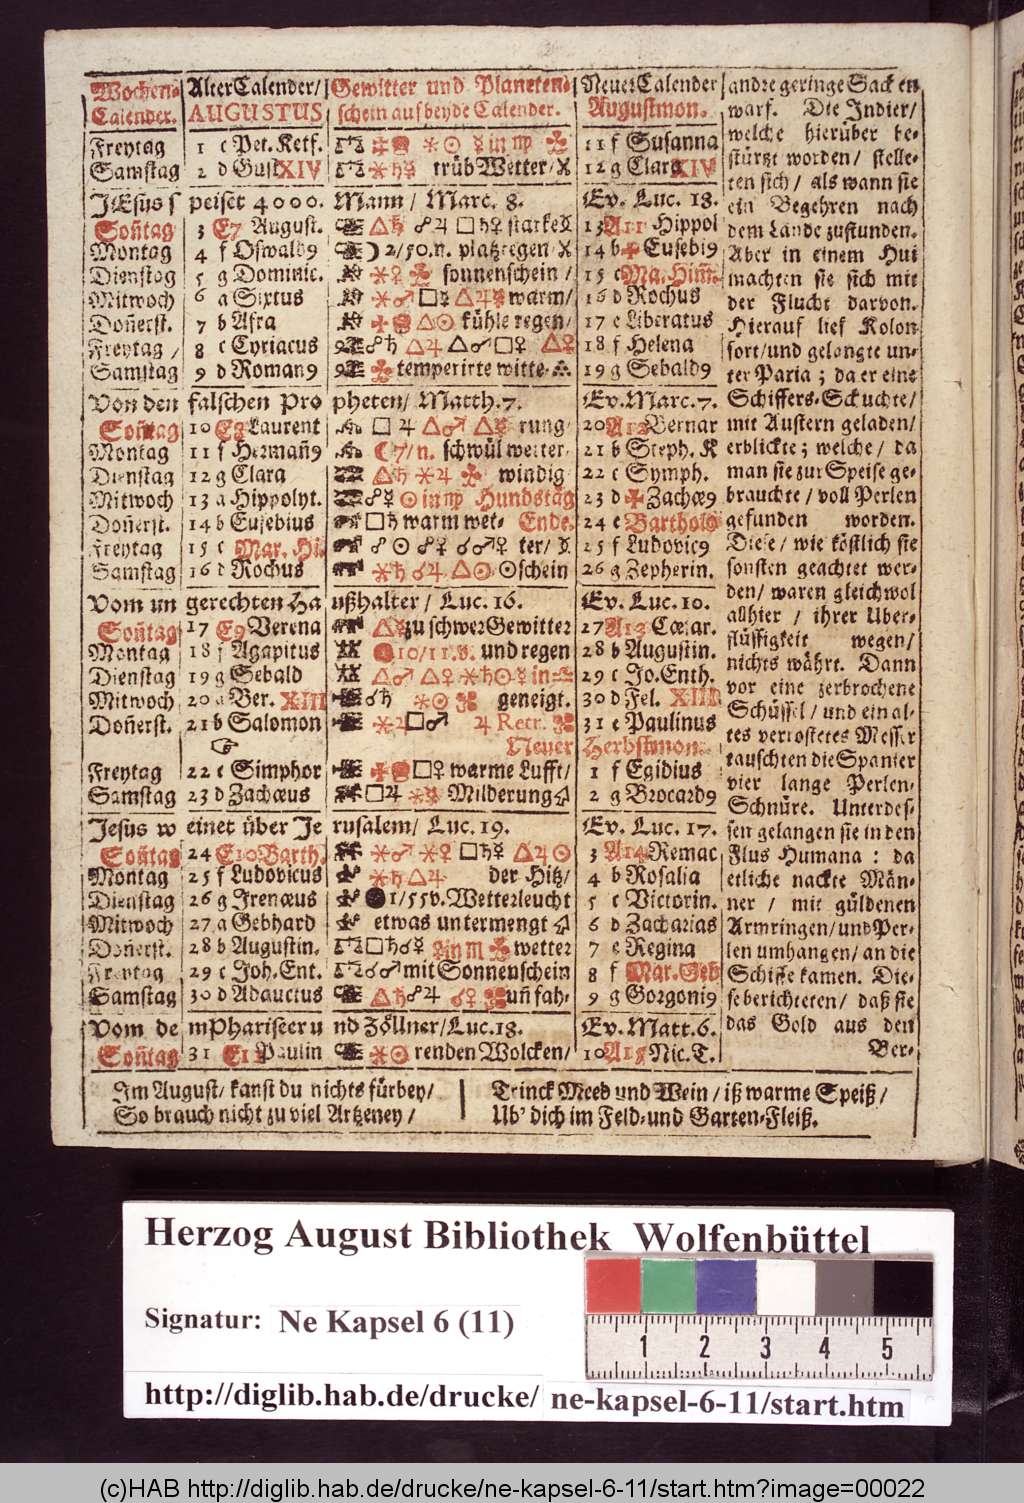 Wochen- Alter Calender/ Gewitter und Planeten- Neuer Calender
Calender. AUGUSTUS schein auf beyde Calender. Augustmon.
Freytag 1 c Pet. Ketf. 11 f Susanna
Samstag 2 d Gust XIV trüb Wetter/ 12 g Clara XIV
JEsus speiset 4000. Mann/ Marc. 8. Ev. Luc. 18.
Soñtag 3 E7 August. △♄ ☍♃ □♄♀ starke 13 A11 Hippol
Montag 4 f Oswald9 ☽ 2/50.n. platzregen/ 14 b Eusebi9
Dienstag 5 g Dominic. sonnenschein/ 15 c Ma. Him̃.
Mittwoch 6 a Sixtus ⚹♂ □☿ △♃☿ warm/ 16 d Rochus
Doñerst. 7 b Afra △☉ kühle regen/ 17 e Liberatus
Freytag/ 8 c Cyriacus ☍♄ △♃ △♂ □♀ △♀ 18 f Helena
Samstag 9 d Roman9 temperirte witte- 19 g Sebald9
Von den falschen Propheten/ Matth. 7. Ev. Marc. 7.
Soñtag 10 E8 Laurent □ ♃ △♂ △☿ rung/ 20 A12 Bernar
Montag 11 f Hermañ9 ☾ 7/n. schwül wetter/ 21 b Steph. K
Dienstag 12 g Clara △♄ ⚹♃ windig 22 c Symph.
Mittwoch 13 a Hippolyt. ☍☿ ☉ in ♍ Hundstäg 23 d Zachæ9
Doñerst. 14 b Eusebius □♄ warm wet- Ende. 24 e Bartholo
Freytag 15 c Mar. Hi. ☍ ☉ ☍♀ ☌♂♀ ter/ 25 f Ludovic9
Samstag 16 d Rochus ⚹♄ ☌♃ △☉ ☉schein 26 g Zepherin.
Vom ungerechten Haußhalter/ Luc. 16. Ev. Luc. 10.
Soñtag 17 E9 Verena △☿ zu schwer Gewitter 27 A13 Cæsar.
Montag 18 f Agapitus 10/11.v. und regen 28 b Augustin.
Dienstag 19 g Sebald △♂ △♀ ⚹♄☉☿ in ♎ 29 c Jo. Enth.
Mittwoch 20 a Ber. XIII ☌♄ ⚹☉ geneigt. 30 d Fel. XIII
Doñerst. 21 b Salomon ⚹♃ □♂ ♃ Retr. 31 e Paulinus
☞ Neuer Herbstmon.
Freytag 22 c Simphor □♀ warme Lufft/ 1 f Egidius
Samstag 23 d Zachæus □♃ ⚹☿ Milderung 2 g Brocard9
Jesus weinet über Jerusalem/ Luc. 19. Ev. Luc. 17.
Soñtag 24 E10 Barth. ⚹♂ ⚹♀ □♄☿ △♃☉ 3 A14 Remac
Montag 25 f Ludovicus ⚹♄ △♃ der Hitz/ 4 b Rosalia
Dienstag 26 g Irenæus 1/55v. Wetterleucht 5 c Victorin.
Mittwoch 27 a Gebhard etwas untermengt 6 d Zacharias
Doñerst. 28 b Augustin. □♄☌☿ wetter 7 e Regina
Freytag 29 c Joh. Ent. ☌♂ mit Sonnenschein 8 f Mar. Geb
Samstag 30 d Adauctus △♄ ☍♃ ☌♀ uñ fah- 9 g Gorgoni9
Vom dem Phariseer und Zöllner/ Luc. 18. Ev. Matt. 6.
Soñtag 31 E11 Paulin ⚹☉ renden Wolcken/ 10 A15 Nic. T.
andre geringe Sachen
warf. Die Indier/
welche hierüber be-
stürtzt worden/ stelle-
ten sich/ als wann sie
ein Begehren nach
dem Lande zustunden.
Aber in einem Hui
machten sie sich mit
der Flucht darvon.
Hierauf lief Kolon
fort/ und gelangte un-
ter Paria; da er eine
Schiffers-Sch uchte/
mit Austern geladen/
erblickte; welche/ da
man sie zur Speise ge-
brauchte/ voll Perlen
gefunden worden.
Diese/ wie köstlich sie
sonsten geachtet wer-
den/ waren gleichwol
allhier/ ihrer Uber-
flüssigkeit wegen/
nichts währt. Dann
vor eine zerbrochene
Schüssel/ und ein al-
tes verrostetes Messer
tauschten die Spanier
vier lange Perlen-
Schnüre. Unterdes-
sen gelangen sie in den
Flus Humana: da
etliche nackte Män-
ner/ mit güldenen
Armringen/ und Per-
len umhangen/ an die
Schiffe kamen. Die-
se berichteten/ daß sie
das Gold aus den
Ber-
Im August/ kanst du nichts fürbey/
So brauch nicht zu viel Artzeney/
Trinck Meed und Wein/ iß warme Speiß/
Ub' dich im Feld- und Garten-Fleiß.
Herzog August Bibliothek Wolfenbüttel
Signatur: Ne Kapsel 6 (11)
1 2 3 4 5
http://diglib.hab.de/drucke/ ne-kapsel-6-11/start.htm
(c)HAB http://diglib.hab.de/drucke/ne-kapsel-6-11/start.htm?image=00022